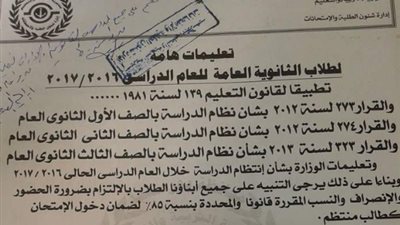 إدارة شئون الطلبة والإمتحانات
تعليمات هامة
لطلاب الثانوية العامة للعام الدراسى ٢٠١٦/٢٠١٧
تطبيقا لقانون التعليم ١٣٩ لسنة ١٩٨١ ......
والقرار ٢٧٣ لسنة ٢٠١٢ بشأن نظام الدراسة بالصف الأول الثانوى العام
والقرار ٢٧٤ لسنة ٢٠١٢ بشأن نظام الدراسة بالصف الثانى الثانوى العام
والقرار ٢٢٣ لسنة ٢٠١٣ بشأن نظام الدراسة بالصف الثالث الثانوى العام
وتعليمات الوزارة بشأن إنتظام الدراسة خلال العام الدراسى الحالى ٢٠١٦/٢٠١٧
وبناءا على ذلك يرجى التنبيه على جميع أبناؤنا الطلاب بالإلتزام بضرورة الحضور
والإنصراف والنسب المقررة قانونا والمحددة بنسبة ٨٥٪ لضمان دخول الإمتحان
كطالب منتظم.